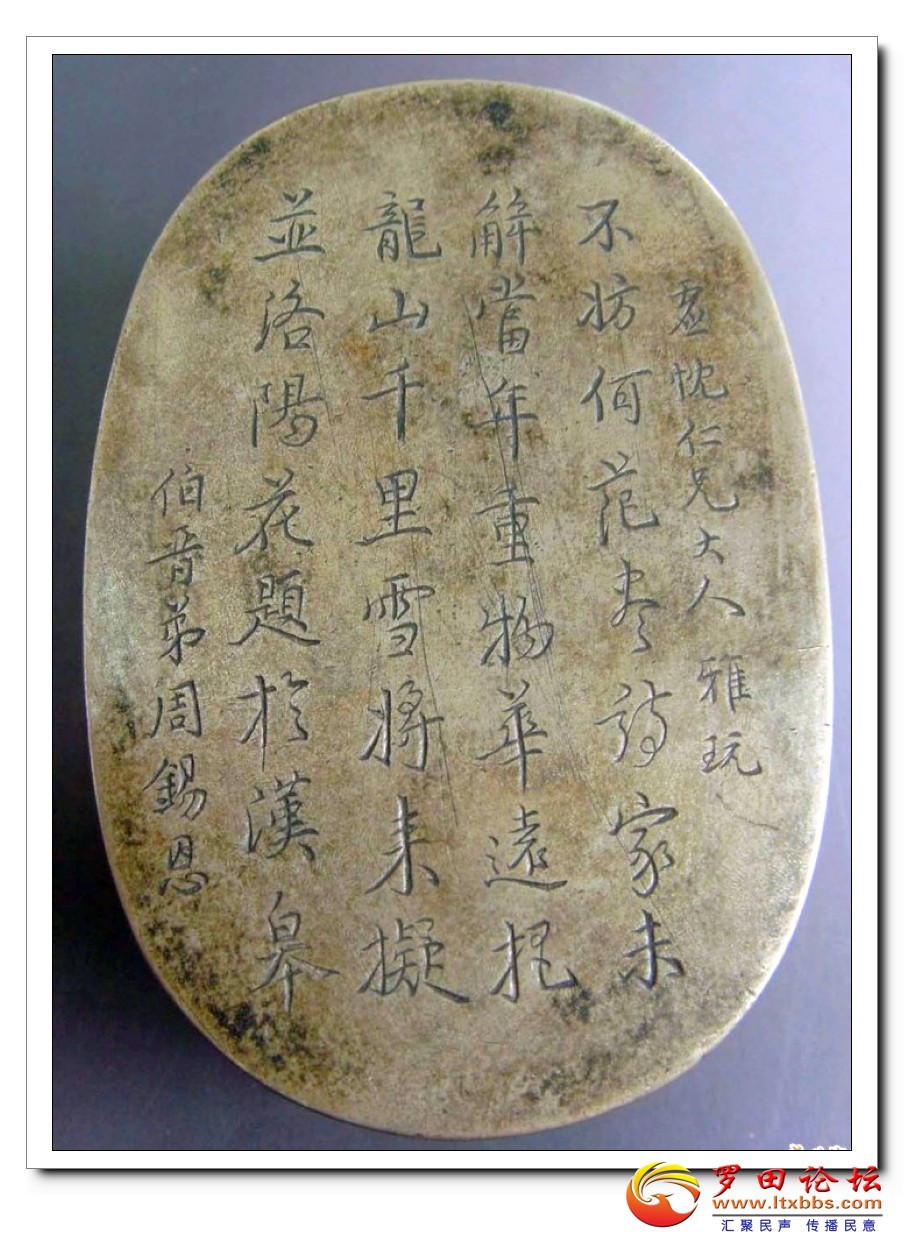 忱仁兄大人 雅玩
不妨何范尽詩家未
解當年重物華遠把
龍山千里雪將来擬
並洛陽花題於漢皋
伯晉弟周錫恩
罗田论坛
www.ltxbbs.com
汇聚民声 传播民意